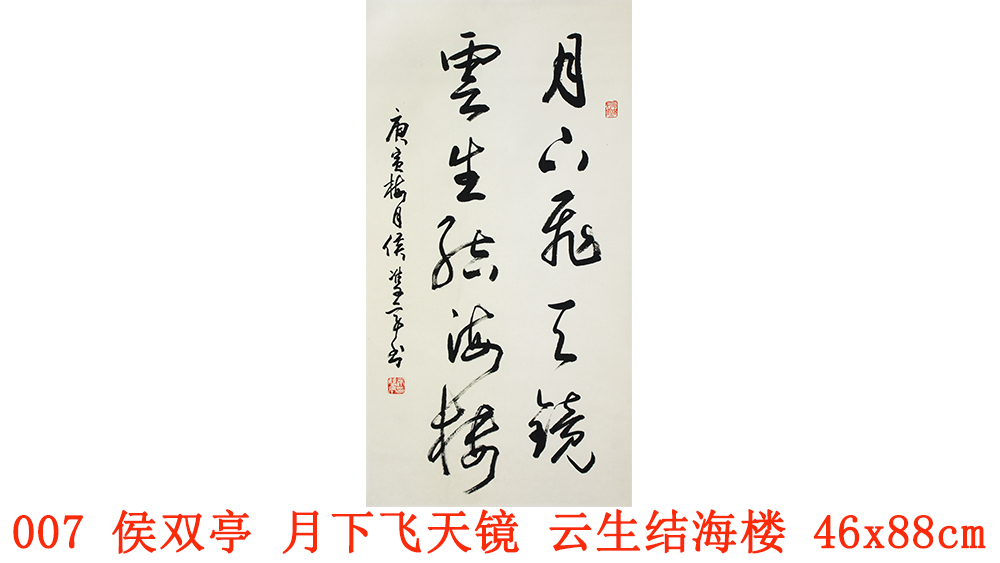 月下飛天鏡
雲生結海樓
庚寅梅月侯雙亭書
007 侯双亭 月下飞天镜 云生结海楼 46x88cm